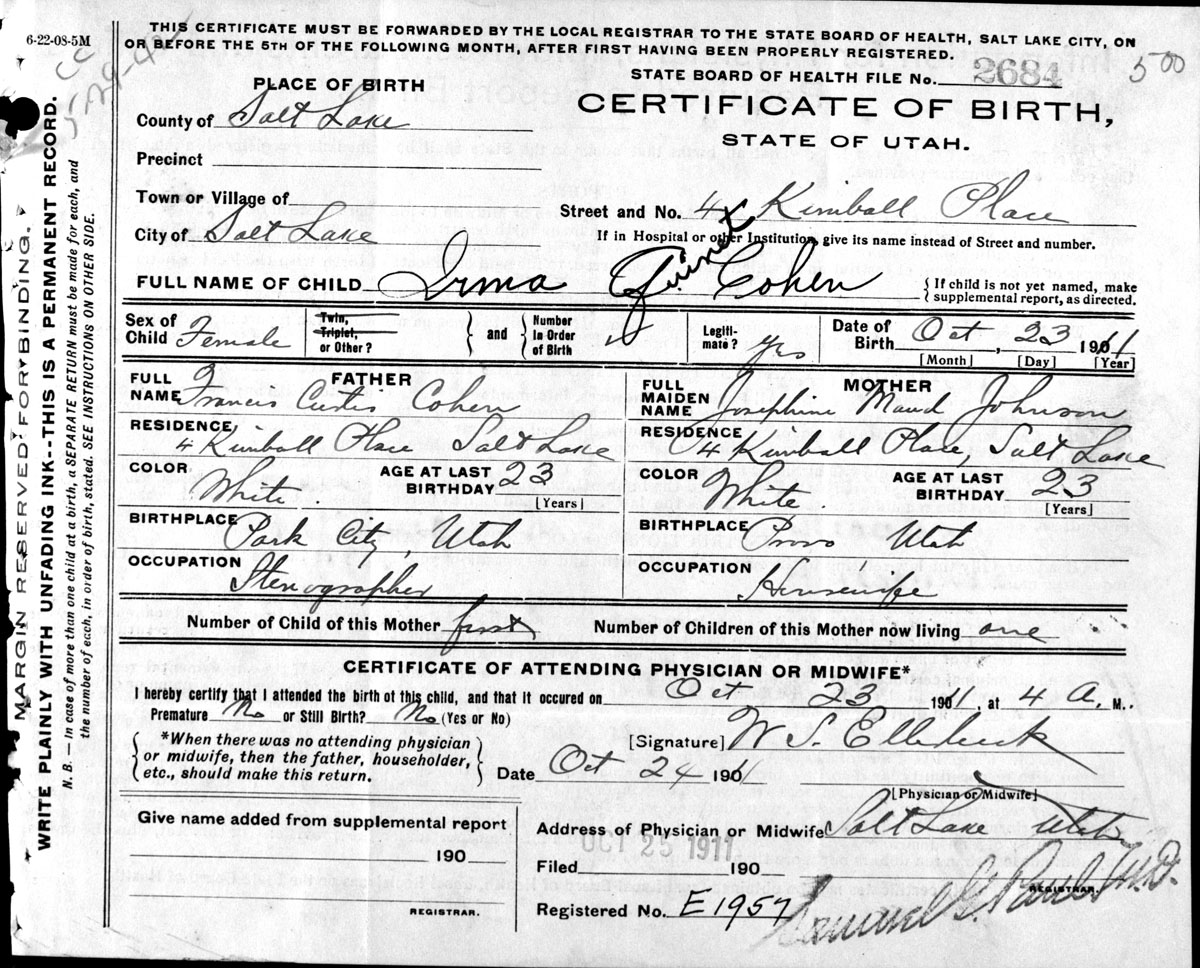 6-22-08-5M
THIS CERTIFICATE MUST BE FORWARDED BY THE LOCAL REGISTRAR TO THE STATE BOARD OF HEALTH, SALT LAKE CITY, ON
OR BEFORE THE 5TH OF THE FOLLOWING MONTH, AFTER FIRST HAVING BEEN PROPERLY REGISTERED.
STATE BOARD OF HEALTH FILE No. 2684
500
PLACE OF BIRTH
CERTIFICATE OF BIRTH,
STATE OF UTAH.
County of Salt Lake
Precinct
Town or Village of
Street and No. 4 Kimball Place
City of Salt Lake
If in Hospital or other Institution, give its name instead of Street and number.
FULL NAME OF CHILD Irma Cohen
{ If child is not yet named, make
supplemental report, as directed.
Sex of Child Female
Twin, Triplet, or Other?
{ and }
Number in Order of Birth
Legiti- mate? Yes
Date of Birth Oct, 23 1911
[Month] [Day] [Year]
FATHER
FULL NAME Francis Curtis Cohen
RESIDENCE 4 Kimball Place Salt Lake
COLOR White.
AGE AT LAST BIRTHDAY 23
[Years]
BIRTHPLACE Park City, Utah
OCCUPATION Stenographer
MOTHER
FULL MAIDEN NAME Josephine Maud Johnson
RESIDENCE 4 Kimball Place, Salt Lake
COLOR White.
AGE AT LAST BIRTHDAY 23
[Years]
BIRTHPLACE Provo Utah
OCCUPATION Housewife
Number of Child of this Mother first
Number of Children of this Mother now living one
CERTIFICATE OF ATTENDING PHYSICIAN OR MIDWIFE*
I hereby certify that I attended the birth of this child, and that it occurred on Oct 23 1911, at 4 A. M..
Premature No or Still Birth? No (Yes or No)
{ *When there was no attending physician
or midwife, then the father, householder,
etc., should make this return. }
[Signature] W. S. Ellerbeck
Date Oct 24 1911
[Physician or Midwife]
Give name added from supplemental report
190
REGISTRAR.
Address of Physician or Midwife Salt Lake Utah
Filed OCT 25 1911 190
Registered No. E1957
Samuel G. Paul M.D.
REGISTRAR.
MARGIN RESERVED FOR BINDING.
WRITE PLAINLY WITH UNFADING INK--THIS IS A PERMANENT RECORD.
N. B. — In case of more than one child at a birth, a SEPARATE RETURN must be made for each, and
the number of each, in order of birth, stated. SEE INSTRUCTIONS ON OTHER SIDE.